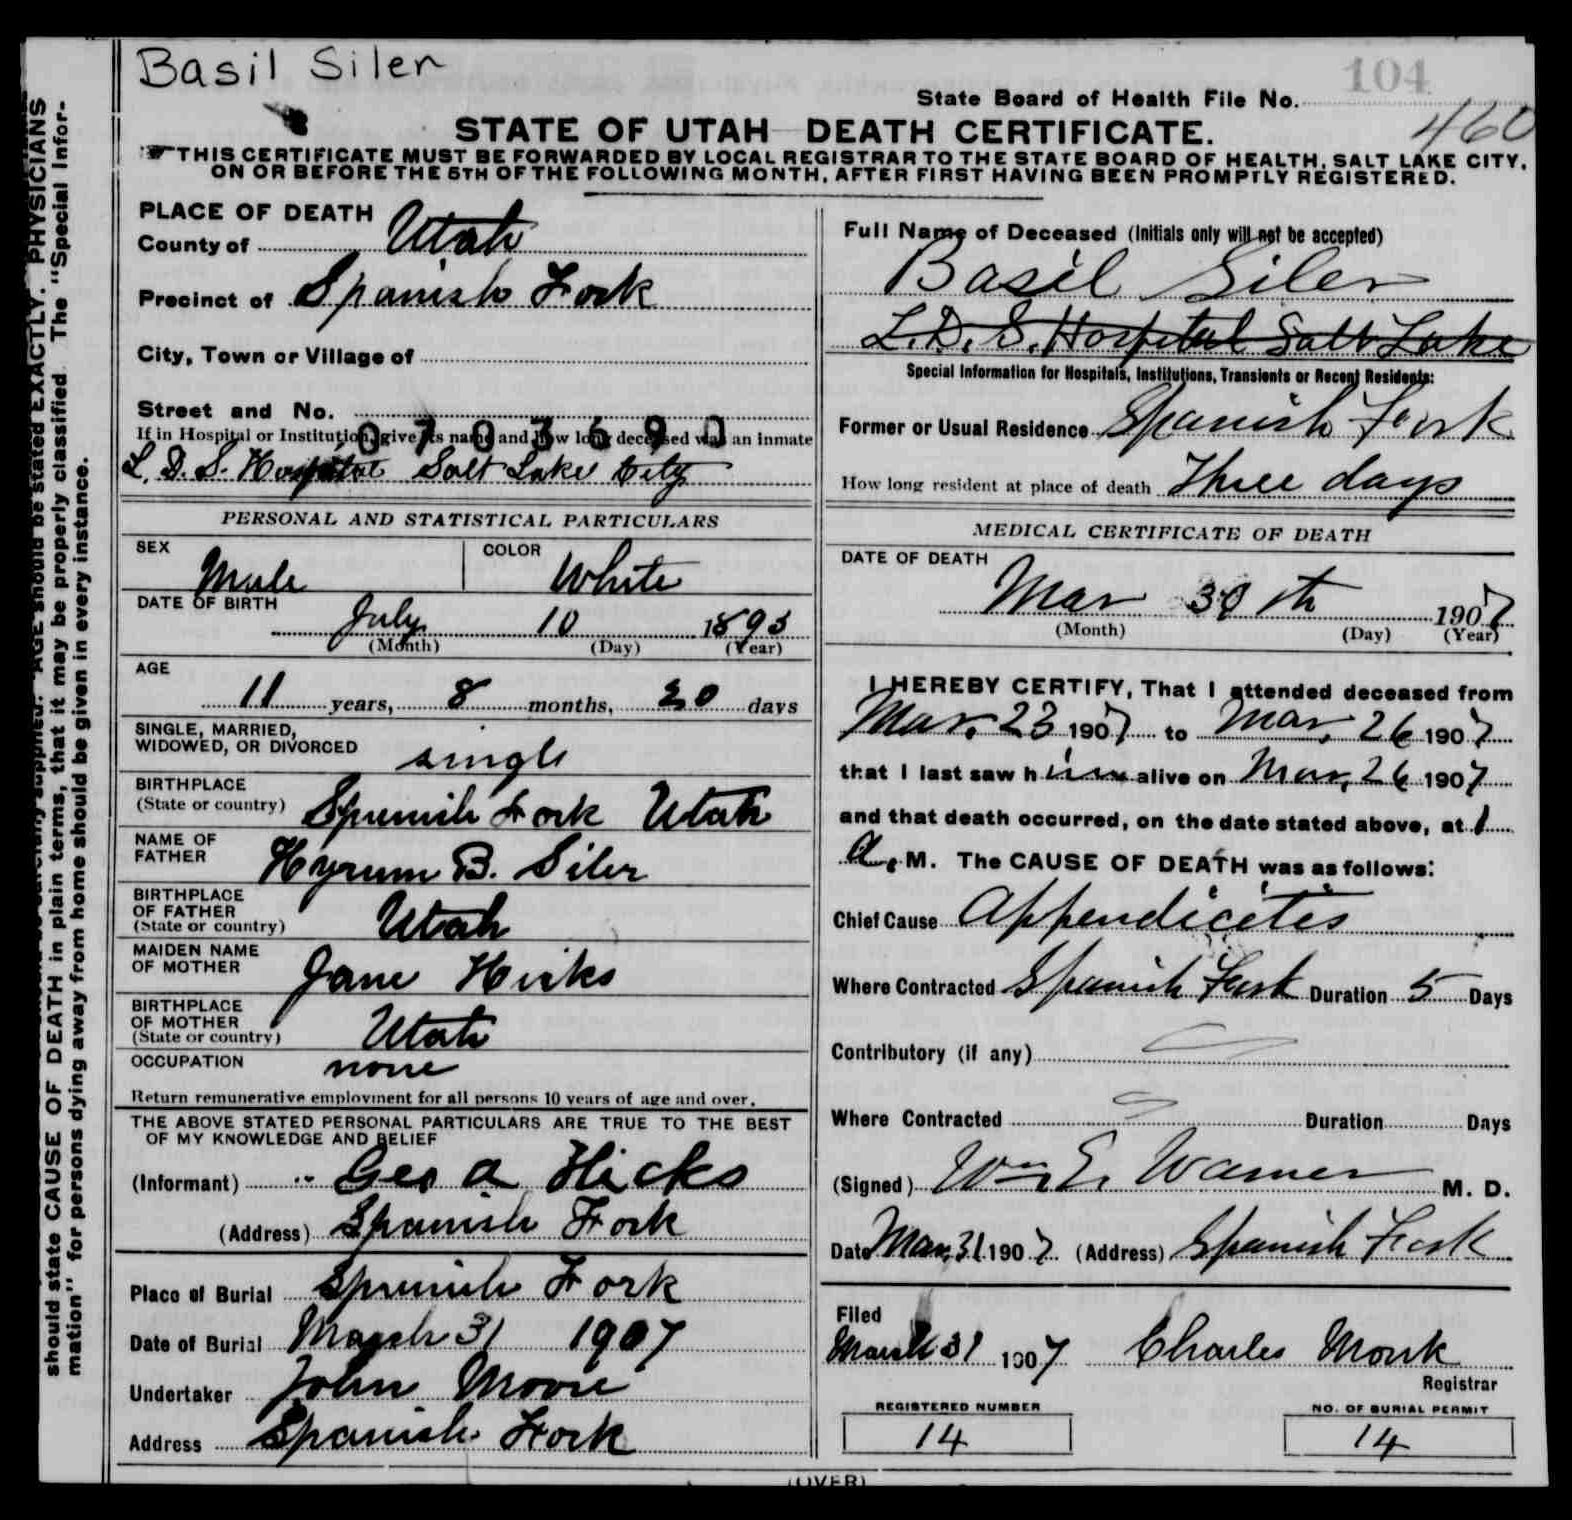 Basil Siler
104
State Board of Health File No.
460
STATE OF UTAH DEATH CERTIFICATE.
THIS CERTIFICATE MUST BE FORWARDED BY LOCAL REGISTRAR TO THE STATE BOARD OF HEALTH, SALT LAKE CITY,
ON OR BEFORE THE 5TH OF THE FOLLOWING MONTH, AFTER FIRST HAVING BEEN PROMPTLY REGISTERED.
PLACE OF DEATH
County of Utah
Precinct of Spanish Fork
City, Town or Village of
Street and No.
0703590
If in Hospital or Institution, give its name and how long deceased was an inmate
L. D. S. Hospital Salt Lake City
PERSONAL AND STATISTICAL PARTICULARS
SEX Male COLOR White
DATE OF BIRTH July 10 1895
(Month) (Day) (Year)
AGE
11 years, 8 months, 20 days
SINGLE, MARRIED,
WIDOWED, OR DIVORCED single
BIRTHPLACE
(State or country) Spanish Fork Utah
NAME OF
FATHER Hyrum B. Siler
BIRTHPLACE
OF FATHER
(State or country) Utah
MAIDEN NAME
OF MOTHER Jane Hicks
BIRTHPLACE
OF MOTHER
(State or country) Utah
OCCUPATION none
Return remunerative employment for all persons 10 years of age and over.
THE ABOVE STATED PERSONAL PARTICULARS ARE TRUE TO THE BEST
OF MY KNOWLEDGE AND BELIEF
(Informant) Geo A Hicks
(Address) Spanish Fork
Place of Burial Spanish Fork
Date of Burial March 31 1907
Undertaker John Moore
Address Spanish Fork
Full Name of Deceased (Initials only will not be accepted)
Basil Siler
L. D. S. Hospital Salt Lake
Special Information for Hospitals, Institutions, Transients or Recent Residents:
Former or Usual Residence Spanish Fork
How long resident at place of death Three days
MEDICAL CERTIFICATE OF DEATH
DATE OF DEATH
Mar 30th 1907
(Month) (Day) (Year)
I HEREBY CERTIFY, That I attended deceased from
Mar. 23 1907 to Mar. 26 1907
that I last saw him alive on Mar. 26 1907
and that death occurred, on the date stated above, at 1
A. M. The CAUSE OF DEATH was as follows:
Chief Cause Appendicitis
Where Contracted Spanish Fork Duration 5 Days
Contributory (if any)
Where Contracted Duration Days
(Signed) Wm E. Warner M. D.
Date Mar. 31 1907 (Address) Spanish Fork
Filed
March 31 1907 Charles Monk
Registrar
REGISTERED NUMBER
14
NO. OF BURIAL PERMIT
14
(OVER)
should state CAUSE OF DEATH in plain terms, that it may be properly classified. The "Special Infor-
mation" for persons dying away from home should be given in every instance.
AGE should be stated EXACTLY. PHYSICIANS